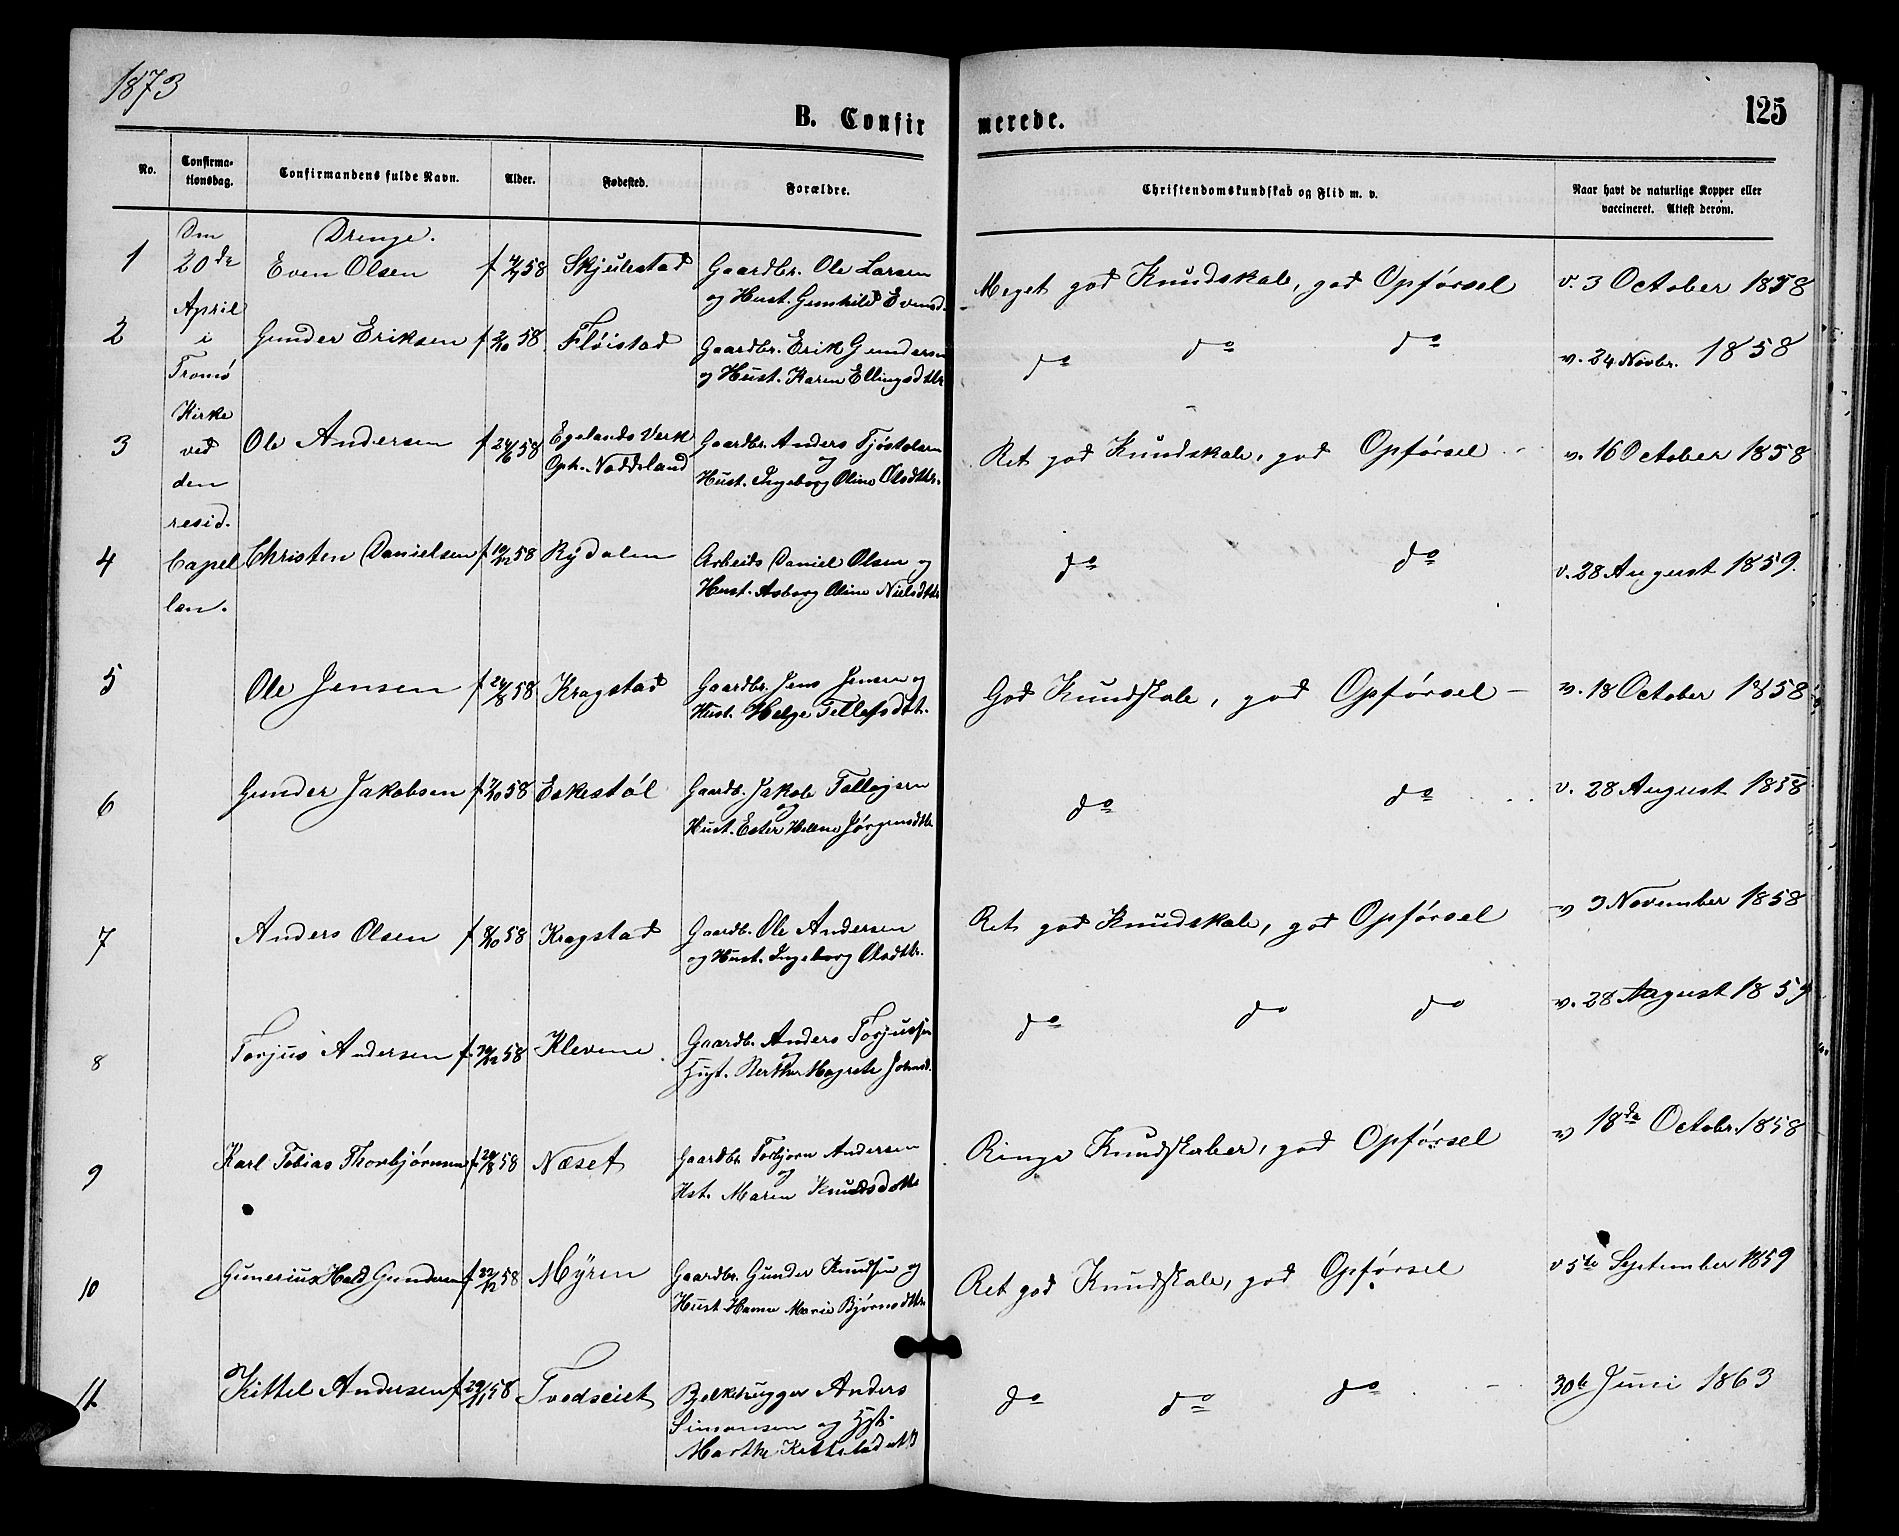 1873
B. Confirmerede.
125
No.
Confirma-
tionsdag.
Confirmandens fulde Navn.
Alder.
Fødested.
Forældre.
Christendomskundskab og Flid m. v.
Naar havt de naturlige Kopper eller
vaccineret. Attest derom.
Den
20de
April
i
Tromø
Kirke
ved
den
resid.
Capel
lan.
Drenge.
1 Even Olsen f 58 Skjulestad Gaardbr. Ole Larsen
og Hust. Gunhild Evensd.
Meget god Kundskab, god Opførsel v. 3 October 1858
2 Gunder Eriksen f 2/10 58 Fløistad Gaardbr. Erik Gundersen
og Hust. Karen Ellingsdtter
do do do v. 24 Novbr. 1858
3 Ole Andersen f 24/6 58 Egelands Verk
Oph. Noddeland
Gaardbr. Anders Tjøstolsen
og
Hust. Ingeborg Oline Olsdtter
Ret god Kundskab, god Opførsel v. 16 October 1858
4 Christen Danielsen f 10/12 58 Rydalen Arbeids Daniel Olsen og
Hust. Asborg Oline Nielsdtter
do do v. 28 August 1859.
5 Ole Jensen f 24/8 58 Kragstad Gaardbr. Jens Jensen og
Hust. Helge Tellefsdtt.
God Kundskab, god Opførsel v. 18 October 1858
6 Gunder Jakobsen f 58 Eskestøl Gaardb. Jakob
og
Hust. Ester Helene Jørgensdtr.
do do v. 28 August 1858
7 Anders Olsen f 8/10 58 Kragstad Gaardb. Ole Andersen
og Hust. Ingeborg Olsdtr.
Ret god Kundskab, god Opførsel v 3 November 1858
8 Torjus Andersen f. 58 Klevene Gaardb. Anders Torjussen
og
Hust. Berthe Magrete
do do do v. 28 August 1859
9 Karl Tobias Thorbjørnsen f 58 Næset Gaardbr Torbjørn Andersen
og
Hst. Maren Knudsdtter
Ringe Kundskaber, god Opførsel v 18de Octobr. 1858
10 Gunerius Hald Gundersen f 22/12 58 Myren Gaardbr. Gunder Knudsen og
Hust Hanne Marie Bjørnsdtter
Ret god Kundskab, god Opførsel v 5te September 1859
11. Kittel Andersen f 29/11 58 Tvedseiet Anders
Simonsen og Hst.
Marthe
do do do 30te Juni 1863